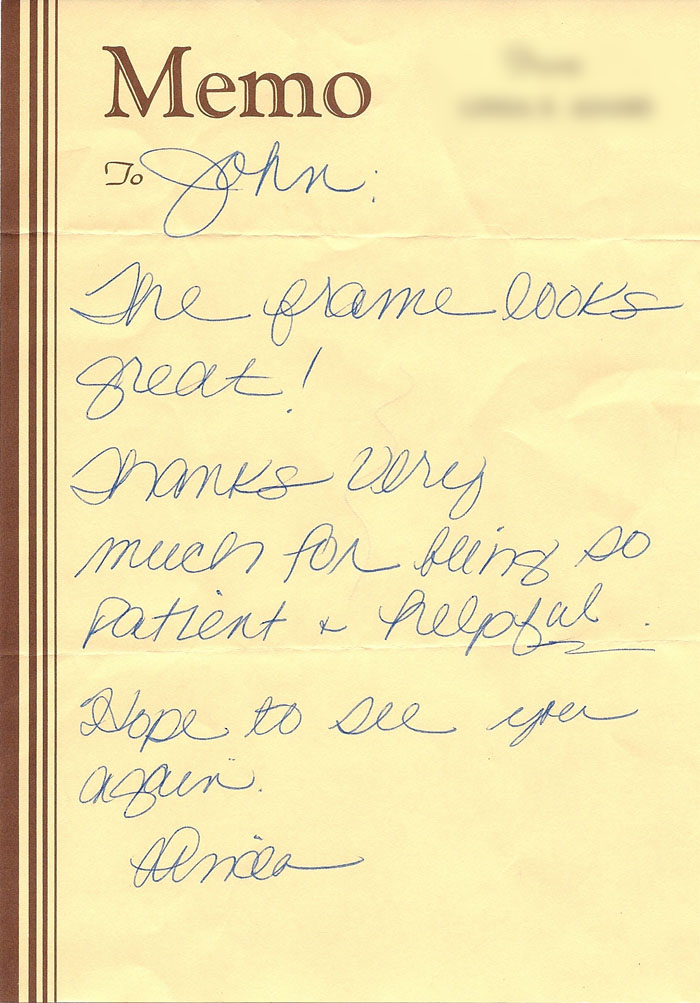 Memo
To John:
The frame looks
great!
Thanks very
much for being so
patient & helpful.
Hope to see you
again.